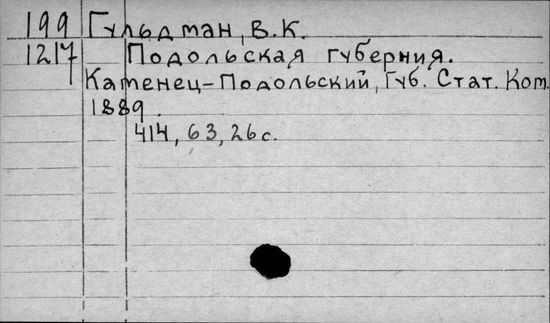 199 Гульдман, В.К.
1217 Подольская губерния.
Каменец-Подольский, Губ. Стат. Ком.
1889.
414, 63, 26 с.